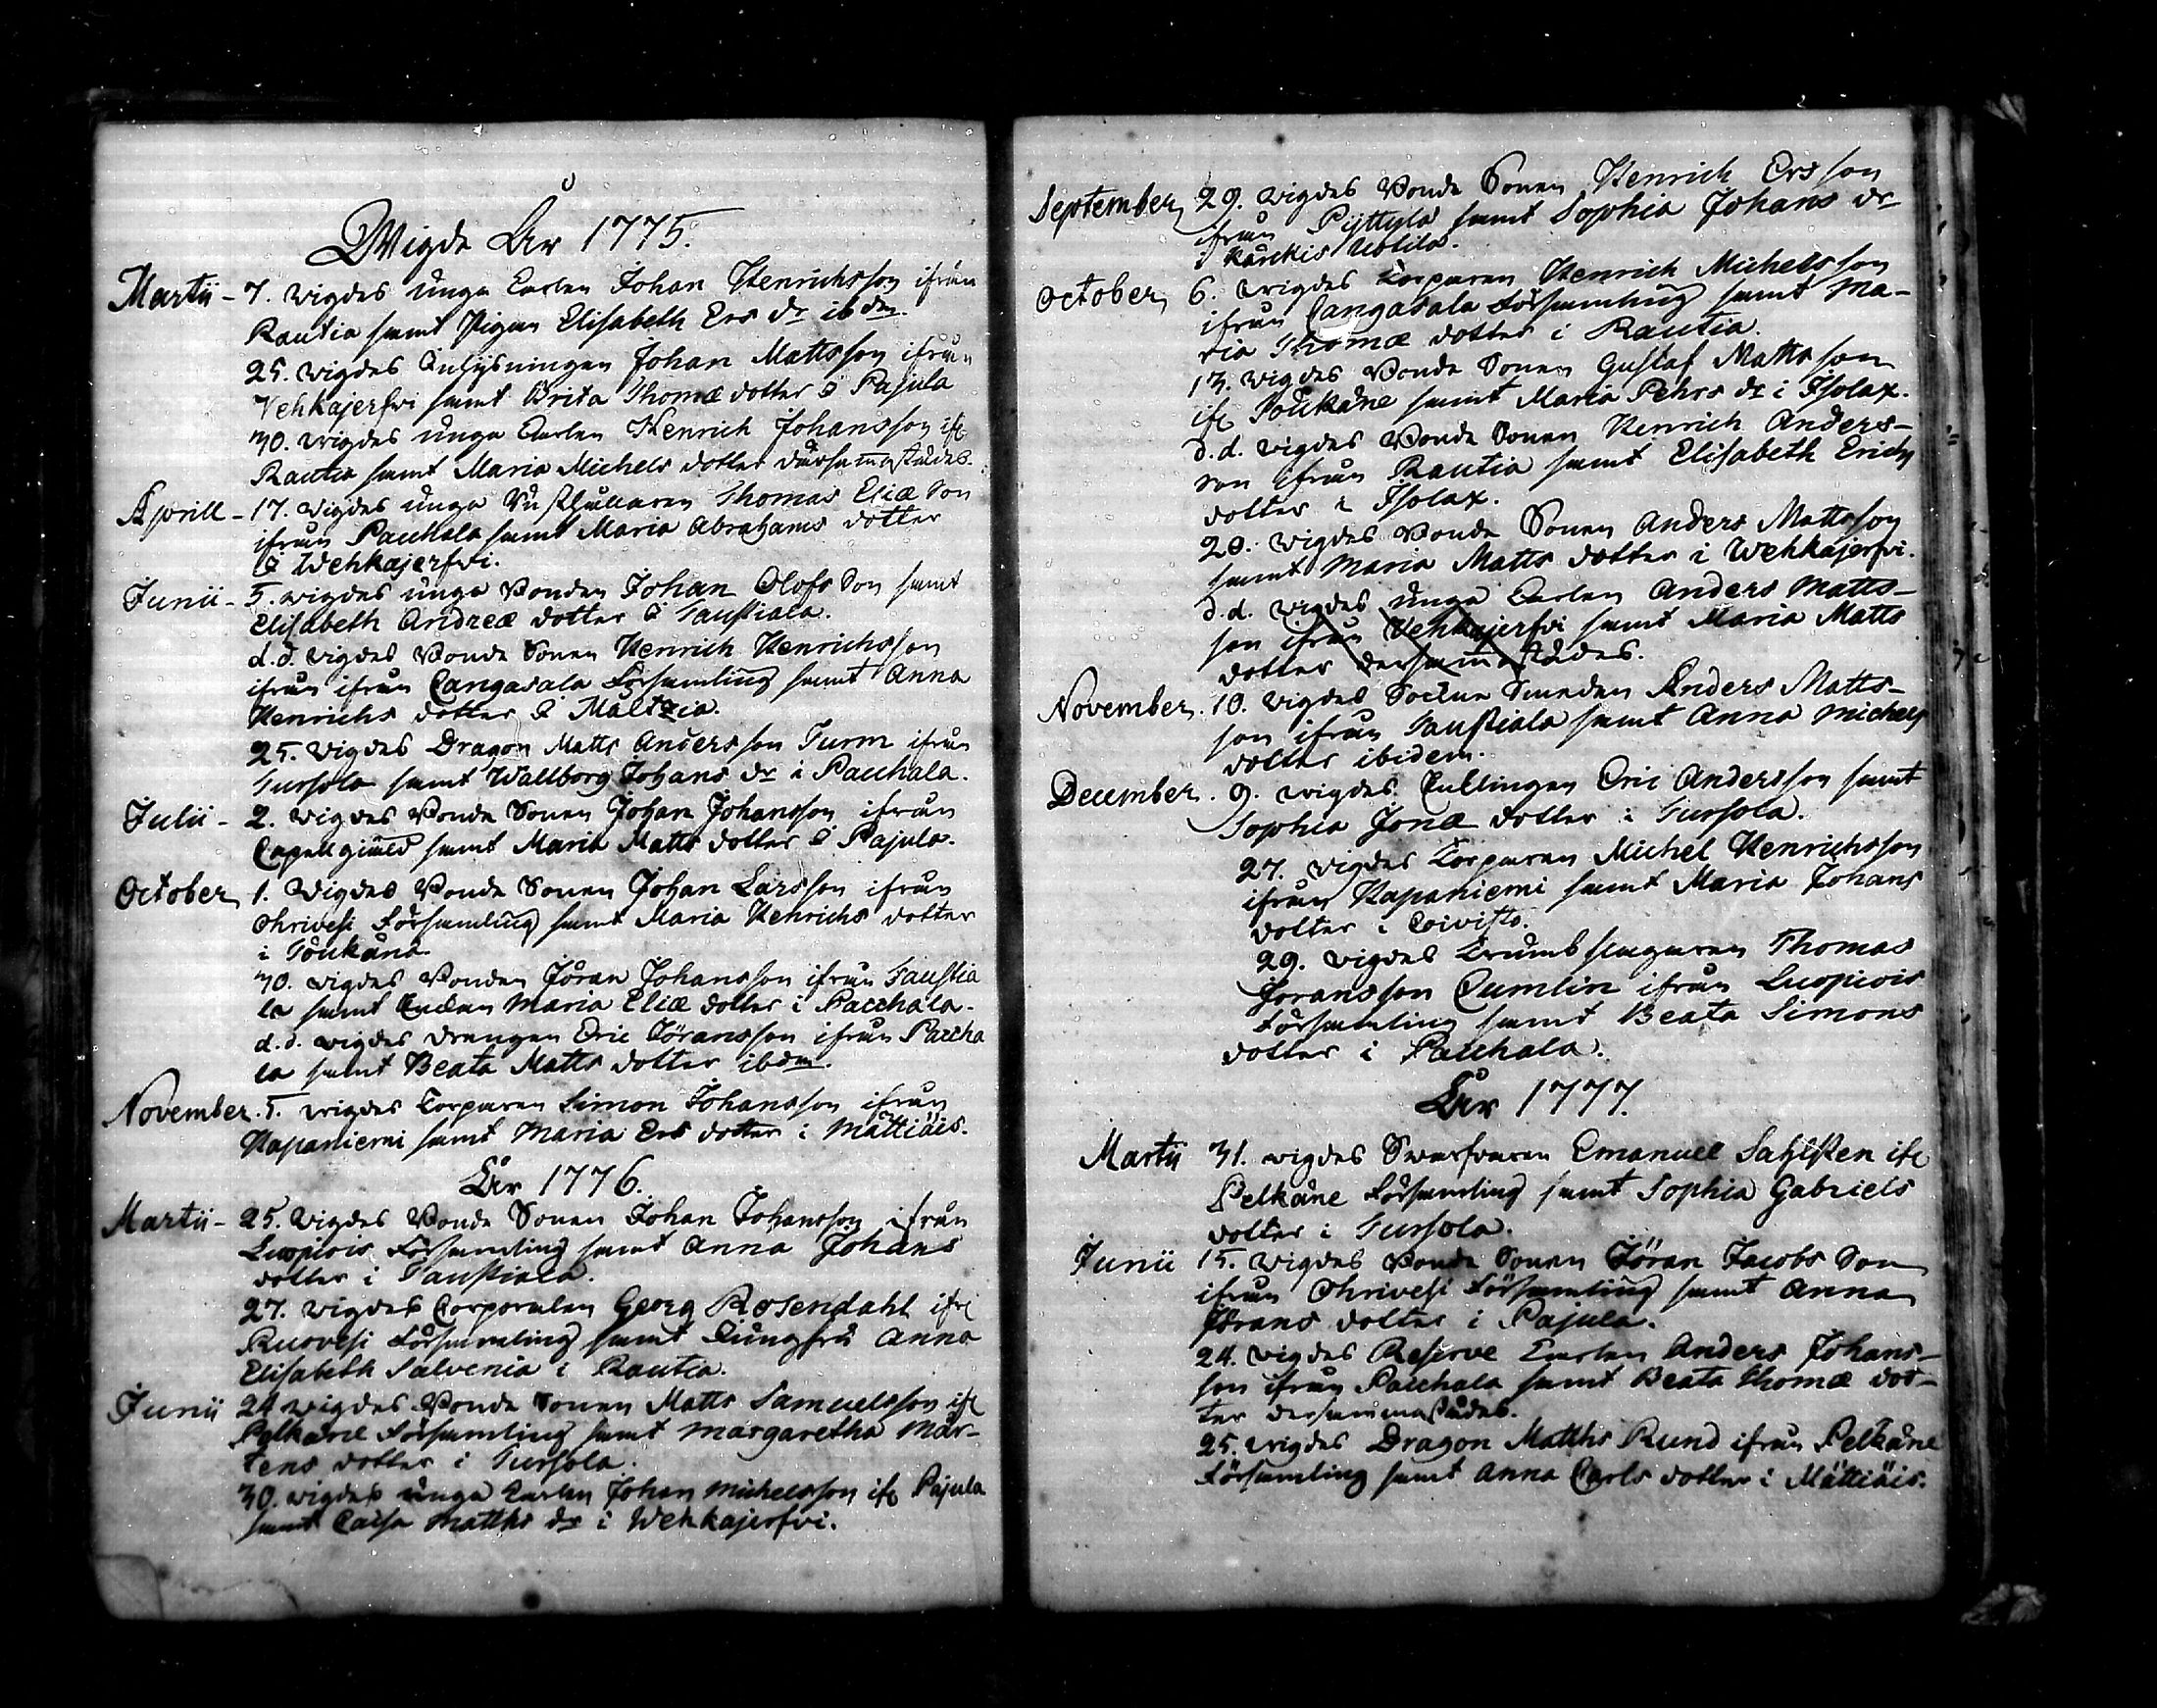 Wigde År 1775.
Martii - 7. vigdes unga Karlen Johan Henrichsson ifrån
Rautia samt Pigan Elisabeth Ers dr ibdm.
25. vigdes Inhysningen Johan Mattsson ifrån
Vehkajerfvi samt Brita Thomæ dotter i Pajula
30. vigdes unga Karlen Henrich Johansson ifr
Rautia samt Maria Michels dotter därsammastädes.
Aprill - 17. vigdes unga Thomas Eliæ Son
ifrån Pacchala samt Maria Abrahams dotter
i Wehkajerfvi.
Junii - 5. vigdes unga Bonden Johan Olofs Son samt
Elisabeth Andreæ dotter i Taustiala.
d.d. vigdes Bonde Sonen Henrich Henrichsson
ifrån ifrån Cangasala Församling samt Anna
Henrichs dotter i
25. vigdes Dragon Matts Andersson Turm ifrån
Tursola samt Wallborg Johans dr i Pacchala.
Julii - 2. vigdes Bonde Sonen Johan Johansson ifrån
Capell samt Maria Matts dotter i Pajula.
October 1. Vigdes Bonde Sonen Johan Larsson ifrån
Ohrivesi Församling samt Maria Henrichs dotter
i Poukana.
30. vigdes Bonden Jöran Johansson ifrån Taustia
la samt Enkan Maria Eliæ dotter i Pacchala.
d.d. vigdes Drengen Eric Jöransson ifrån Paccha
la samt Beata Matts dotter ibdm.
November. 5. vigdes Torparen Simon Johansson ifrån
Hapaniemi samt Maria Ers dotter i Mättiäis.
År 1776.
Martii - 25. vigdes Bonde Sonen Johan Johansson ifrån
Luopiois Församling samt Anna Johans
dotter i Taustiala.
27. vigdes Corporalen Georg Rosendahl ifr
Ruovesi Församling samt Jungfru Anna
Elisabeth Salvenia i Rautia.
Junii 24 vigdes Bonde Sonen Matts Samuelsson ifr
Pelkäne Församling samt Margaretha Mår-
tens dotter i Tursola.
30. vigdes unga Karlen Johan Michelsson ifr Pajula
samt Caisa Matths dr i Wehkajerfvi.
September 29. vigdes Bonde Sonen Henrich Ersson
ifrån Pyttylä samt Sophia Johans dr
i Uotila.
October 6. vigdes Torparen Henrich Michelsson
ifrån Cangasala Församling samt Ma-
ria Thomæ dotter i Rautia.
13. vigdes Bonde Sonen Gustaf Mattsson
ifr Poukane samt Maria Pehrs dr i Isolax.
d.d. vigdes Bonde Sonen Henrich Anders-
son ifrån Rautia samt Elisabeth Erichs
dotter i Isolax.
20. vigdes Bonde Sonen Anders Mattsson
samt Maria Matts dotter i Wehkajerfvi.
d.d. vigdes unga Karlen Anders Matts-
son ifrån Vehkajerfvi samt Maria Matts
dotter dersammastädes.
November. 10. vigdes Sockne Smeden Anders Matts-
son ifrån Taustiala samt Anna Michels
dotter ibidem.
December. 9. vigdes Eric Andersson samt
Sophia Jonæ dotter i Tursola.
27. vigdes Torparen Michel Henrichsson
ifrån Hapaniemi samt Maria Johans
dotter i Coivisto.
29. vigdes Trumbslagaren Thomas
Göransson Cumlin ifrån Luopiois
Församling samt Beata Simons
dotter i Pacchala.
År 1777.
Martii 31. vigdes Svarfvaren Emanuel Sahlsten ifr
Pelkäne Församling samt Sophia Gabriels
dotter i Tursola.
Junii 15. vigdes Bonde Sonen Jöran Jacobs Son
ifrån Ohrivesi Församling samt Anna
Jörans dotter i Pajula.
24. vigdes Reserve Karlen Anders Johans-
son ifrån Pacchala samt Beata Thomæ dot-
ter dersammastädes.
25. vigdes Dragon Matths Rund ifrån Pelkäne
Församling samt Anna Carls dotter i Mättiäis.